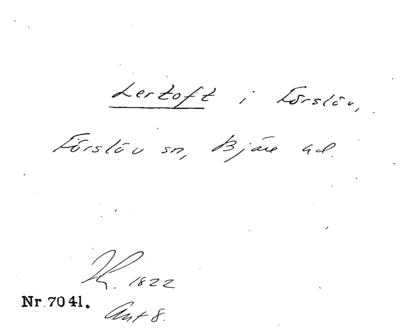 Lertoft i Förslöv,
Förslöv sn, Bjäre hd.
Kr. 1822
Nr. 7041.
Ant 8.